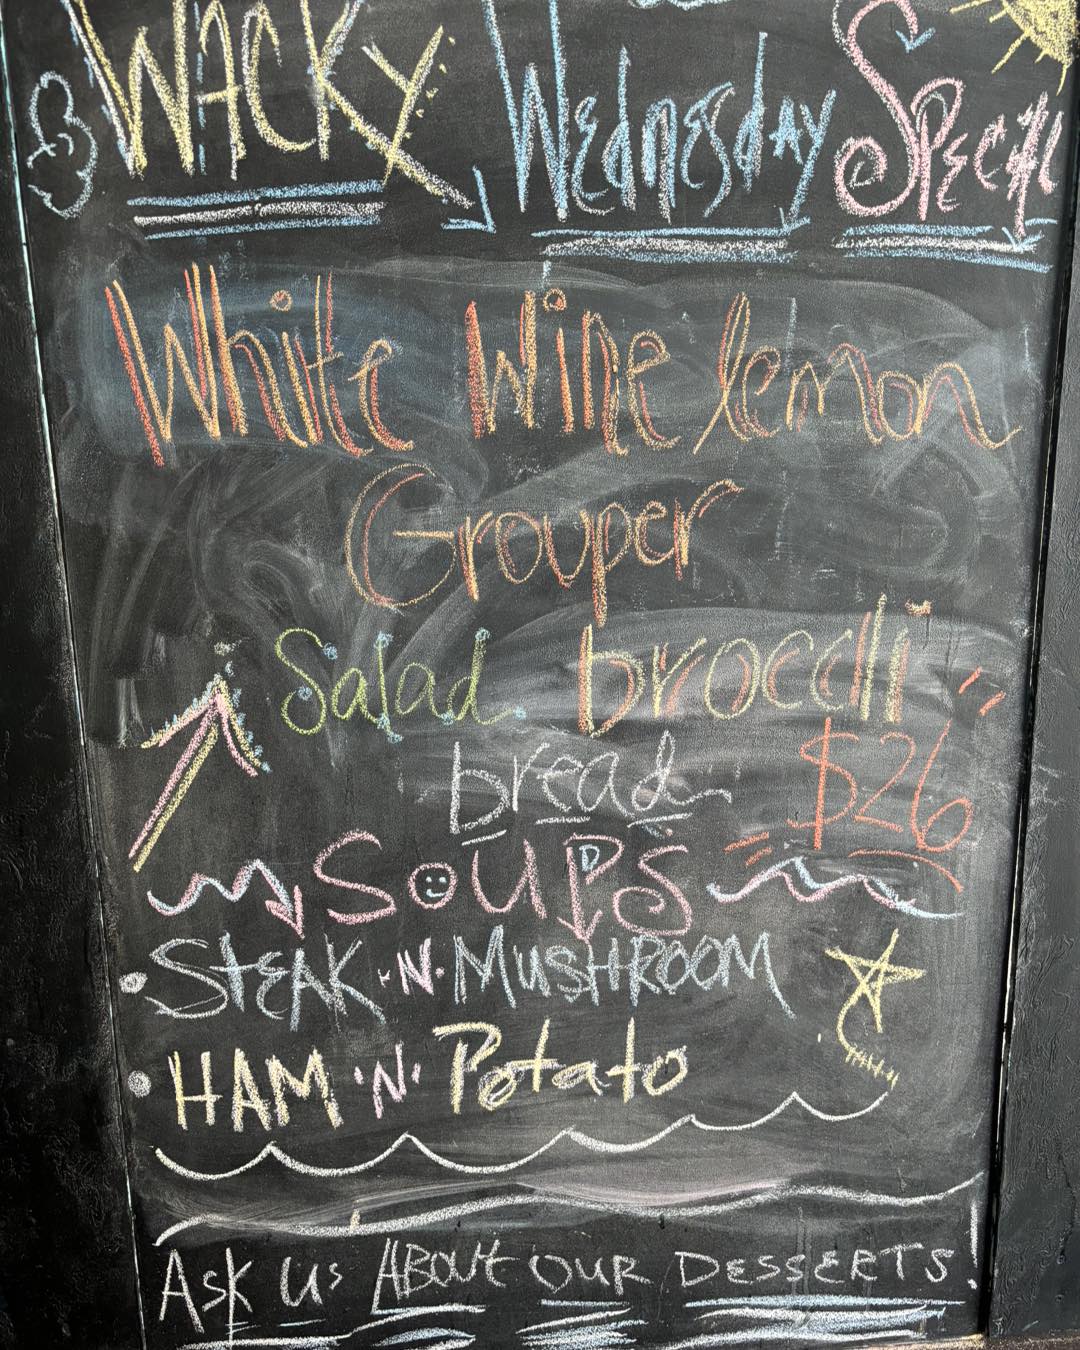 WACKY Wednesday Special
White Wine lemon
Grouper
Salad broccoli
bread $26
SOUPS
• STEAK •N• MUSHROOM
• HAM 'N' Potato
ASK Us ABOUT OUR DESSERTS!